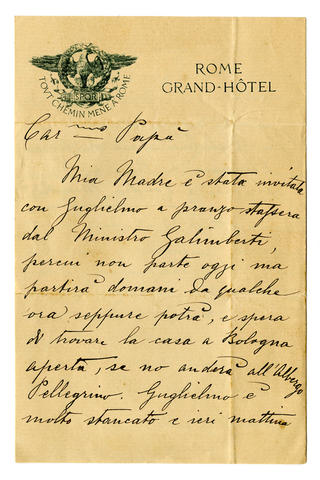 S.P.Q.R.
TOVT CHEMIN MENE A ROME
ROME
GRAND-HÔTEL
Car mo Papà
Mia Madre è stata invitata
con Guglielmo a pranzo stassera
dal Ministro Galimberti,
percui non parte oggi ma
partirà domani da qualche
ora seppure potrà, e spera
di trovare la casa a Bologna
aperta, se no anderà all'Albergo
Pellegrino. Guglielmo è
molto stancato e ieri mattina